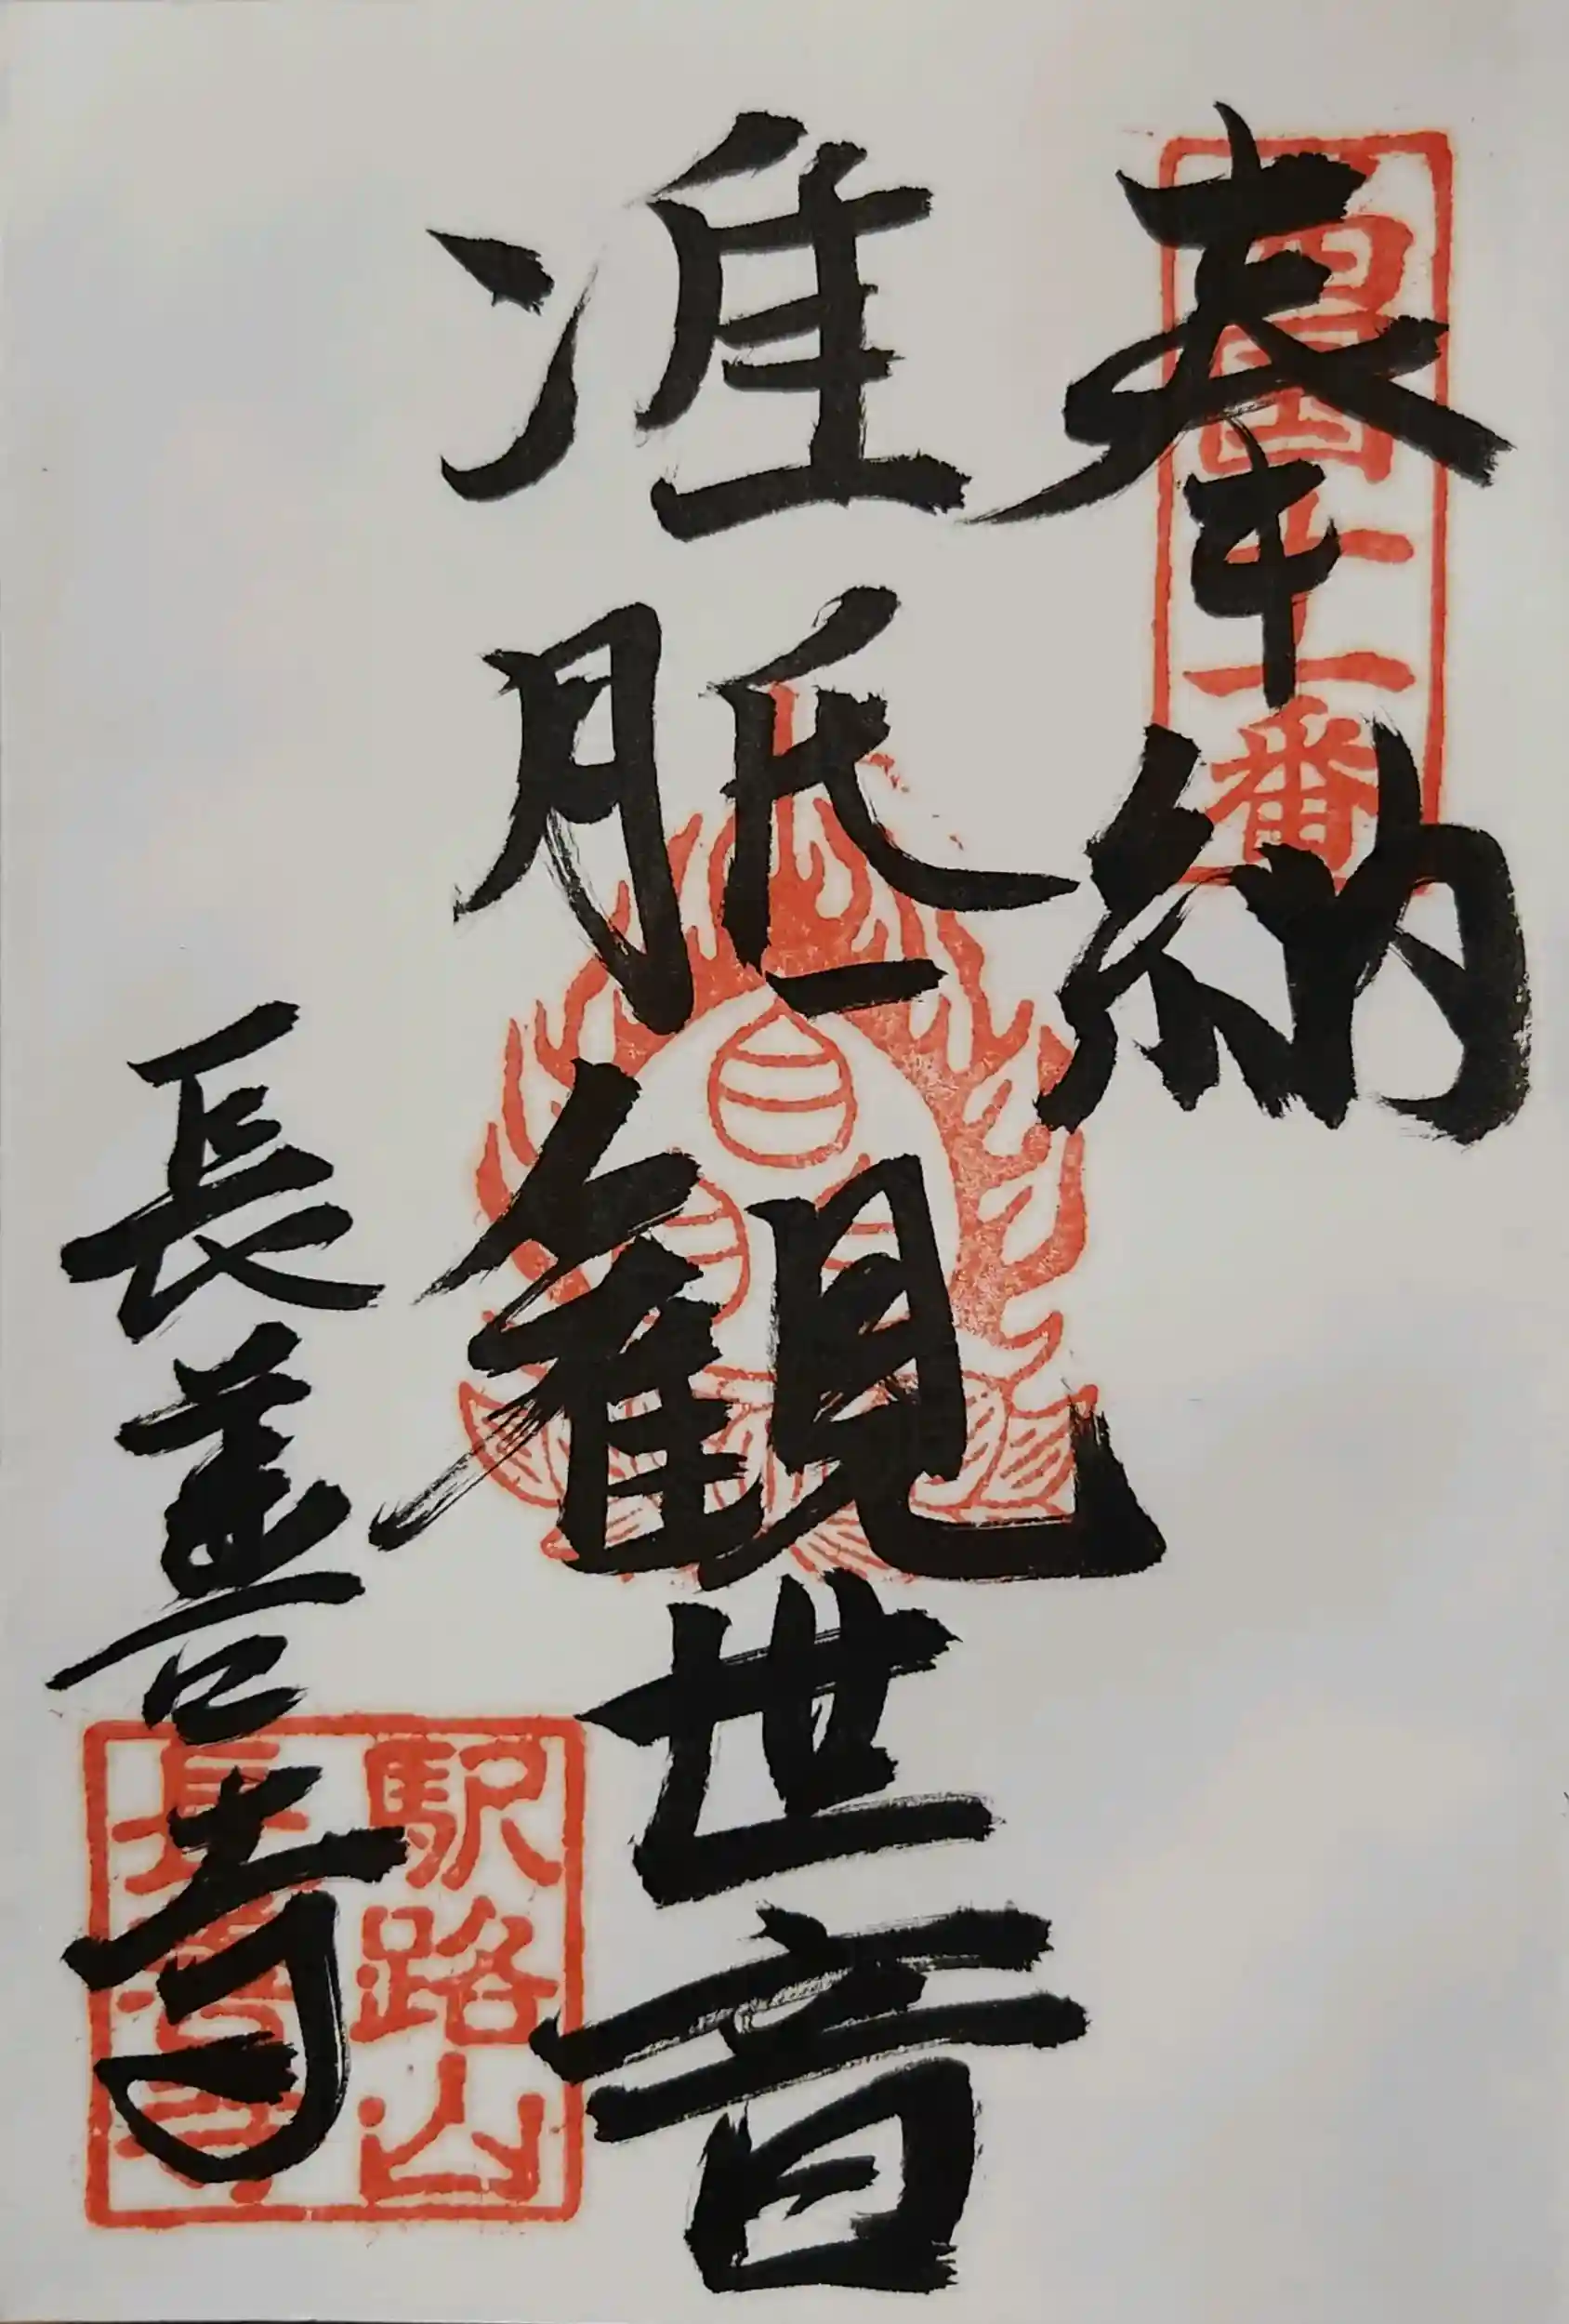 奉納
准胝観世音
長善寺
駅路山
長善寺